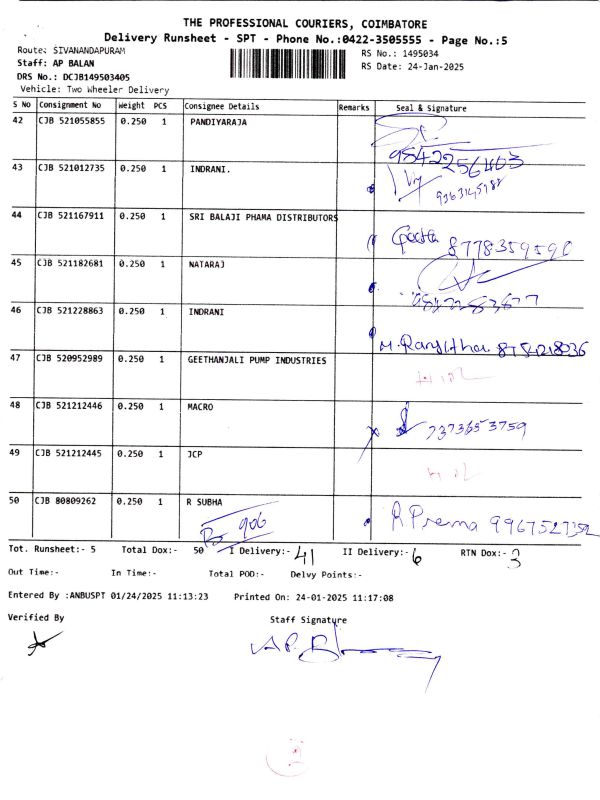 THE PROFESSIONAL COURIERS, COIMBATORE
Delivery Runsheet - SPT - Phone No.:0422-3505555 - Page No.:5
Route: SIVANANDAPURAM
RS No.: 1495034
Staff: AP BALAN
RS Date: 24-Jan-2025
DRS No.: DCJB149503405
Vehicle: Two Wheeler Delivery
S No Consignment No Weight PCS Consignee Details Remarks Seal & Signature
42 CJB 521055855 0.250 1 PANDIYARAJA
43 CJB 521012735 0.250 1 INDRANI.
44 CJB 521167911 0.250 1 SRI BALAJI PHAMA DISTRIBUTORS
45 CJB 521182681 0.250 1 NATARAJ
46 CJB 521228863 0.250 1 INDRANI
47 CJB 520952989 0.250 1 GEETHANJALI PUMP INDUSTRIES
48 CJB 521212446 0.250 1 MACRO 7373653759
49 CJB 521212445 0.250 1 JCP
50 CJB 80809262 0.250 1 R SUBHA R Prema
Tot. Runsheet:- 5 Total Dox:- 50 I Delivery:- 41 II Delivery:- 6 RTN Dox:- 3
Out Time:- In Time:- Total POD:- Delvy Points:-
Entered By :ANBUSPT 01/24/2025 11:13:23 Printed On: 24-01-2025 11:17:08
Verified By Staff Signature